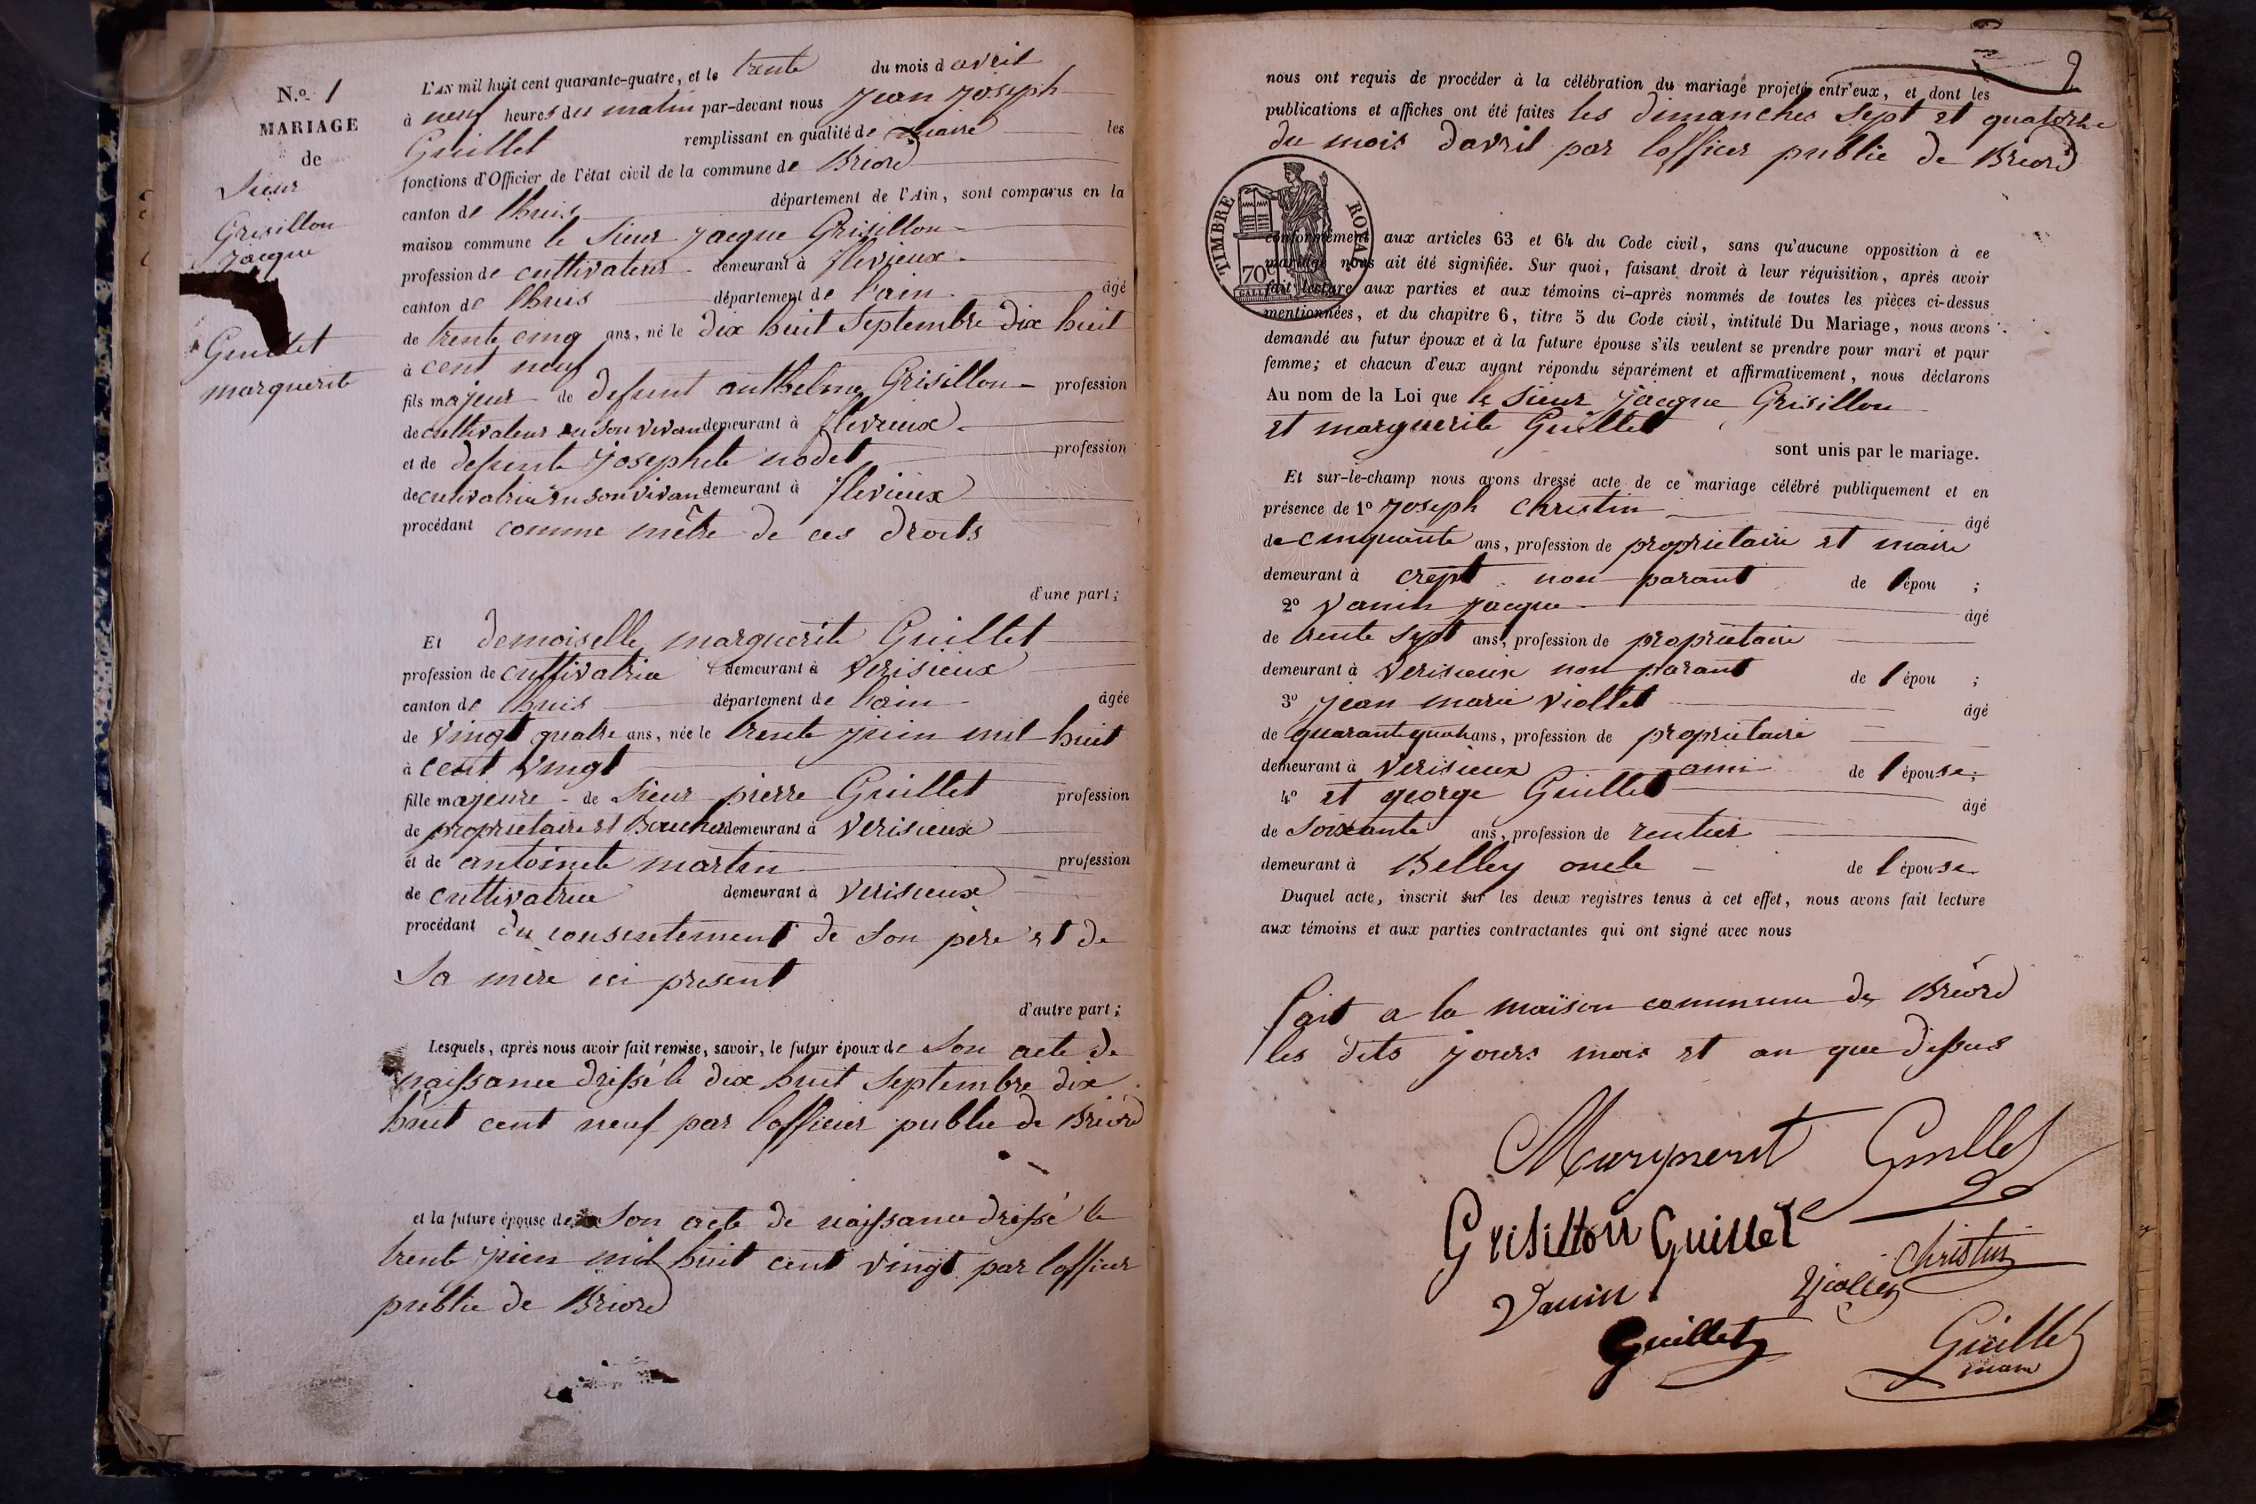 N.o 1
MARIAGE
de
Sieur
Grisillon
Jacque
Guillet
marguerite
L'AN mil huit cent quarante-quatre, et le trente du mois d avril
à neuf heures du matin par-devant nous Jean Joseph
Guillet remplissant en qualité de maire les
fonctions d'Officier de l'état civil de la commune de Briord
canton de lhuis département de l'Ain, sont comparus en la
maison commune le Sieur Jacque Grisillon
profession de cultivateur demeurant à flevieux
canton de lhuis département de l'ain âgé
de trente cinq ans, né le dix huit Septembre dix huit
à cent neuf
fils majeur de defunt anthelme Grisillon profession
de cultivateur en son vivan demeurant à flevieux
et de defunte Josephete nodet profession
de cultivatrice en son vivan demeurant à flevieux
procédant comme mêtre de ces droits
d'une part;
Et demoiselle marguerite Guillet
profession de cultivatrice demeurant à Verisieux
canton de lhuis département de l'ain âgée
de vingt quatre ans, née le trente juin mil huit
à cent vingt
fille majeure de Sieur pierre Guillet profession
de proprietaire et Boucher demeurant à Verisieux
et de antoinete martin profession
de cultivatrice demeurant à Verisieux
procédant du consentement de son pere et de
sa mère ici present
d'autre part;
Lesquels, après nous avoir fait remise, savoir, le futur époux de Son acte de
naissance dressé le dix huit Septembre dix
huit cent neuf par l'officier public de Briord
et la future épouse de Son acte de naissance dressé le
trente juin mil huit cent vingt par l'officier
public de Briord
2
nous ont requis de procéder à la célébration du mariage projeté entr'eux, et dont les
publications et affiches ont été faites les dimanches Sept et quatorze
du mois davril par lofficier public de Briord
TIMBRE ROYAL
70c
conformément aux articles 63 et 64 du Code civil, sans qu'aucune opposition à ce
mariage nous ait été signifiée. Sur quoi, faisant droit à leur réquisition, après avoir
fait lecture aux parties et aux témoins ci-après nommés de toutes les pièces ci-dessus
mentionnées, et du chapitre 6, titre 5 du Code civil, intitulé Du Mariage, nous avons
demandé au futur époux et à la future épouse s'ils veulent se prendre pour mari et pour
femme; et chacun d'eux ayant répondu séparément et affirmativement, nous déclarons
Au nom de la Loi que le Sieur Jacque Grisillon
et marguerite Guillet
sont unis par le mariage.
Et sur-le-champ nous avons dressé acte de ce mariage célébré publiquement et en
présence de 1o Joseph Christin âgé
de cinquante ans, profession de proprietaire et maire
demeurant à crept non parant de l épou ;
2o Vanin Jacque âgé
de trente Sept ans, profession de proprietaire
demeurant à Verisieux non parant de l épou ;
3o Jean marie Viollet âgé
de quarante quatre ans, profession de proprietaire
demeurant à Verisieux ami de l épouse;
4o et george Guillet âgé
de Soixante ans, profession de rentier
demeurant à Belley oncle de l épouse
Duquel acte, inscrit sur les deux registres tenus à cet effet, nous avons fait lecture
aux témoins et aux parties contractantes qui ont signé avec nous
fait a la maison commune de Briord
les dits jours mois et an que dessus
Marguerit Guillet
Grisillon Guillet
Christin
Vanin Viollet
Guillet Guillet
maire